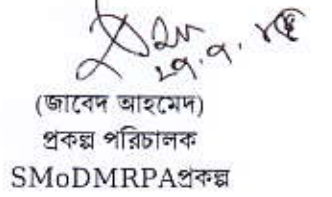 (জাবেদ আহমেদ)
প্রকল্প পরিচালক
SMoDMRPAপ্রকল্প